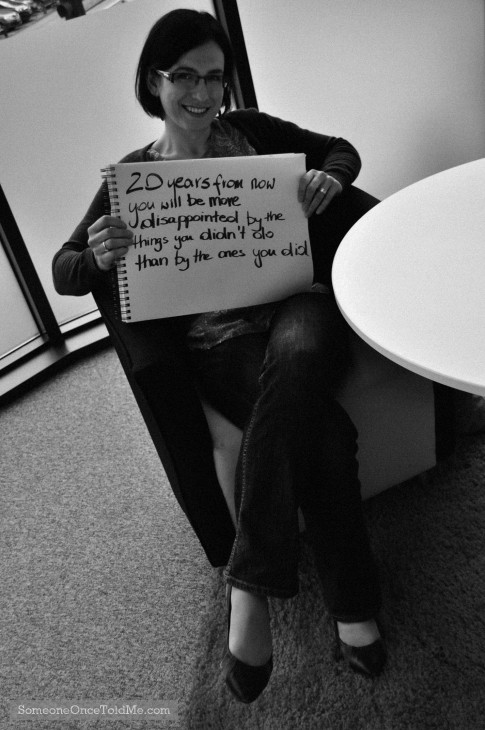 20 years from now
you will be more
disappointed by the
things you didn't do
than by the ones you did
SomeoneOnceToldMe.com